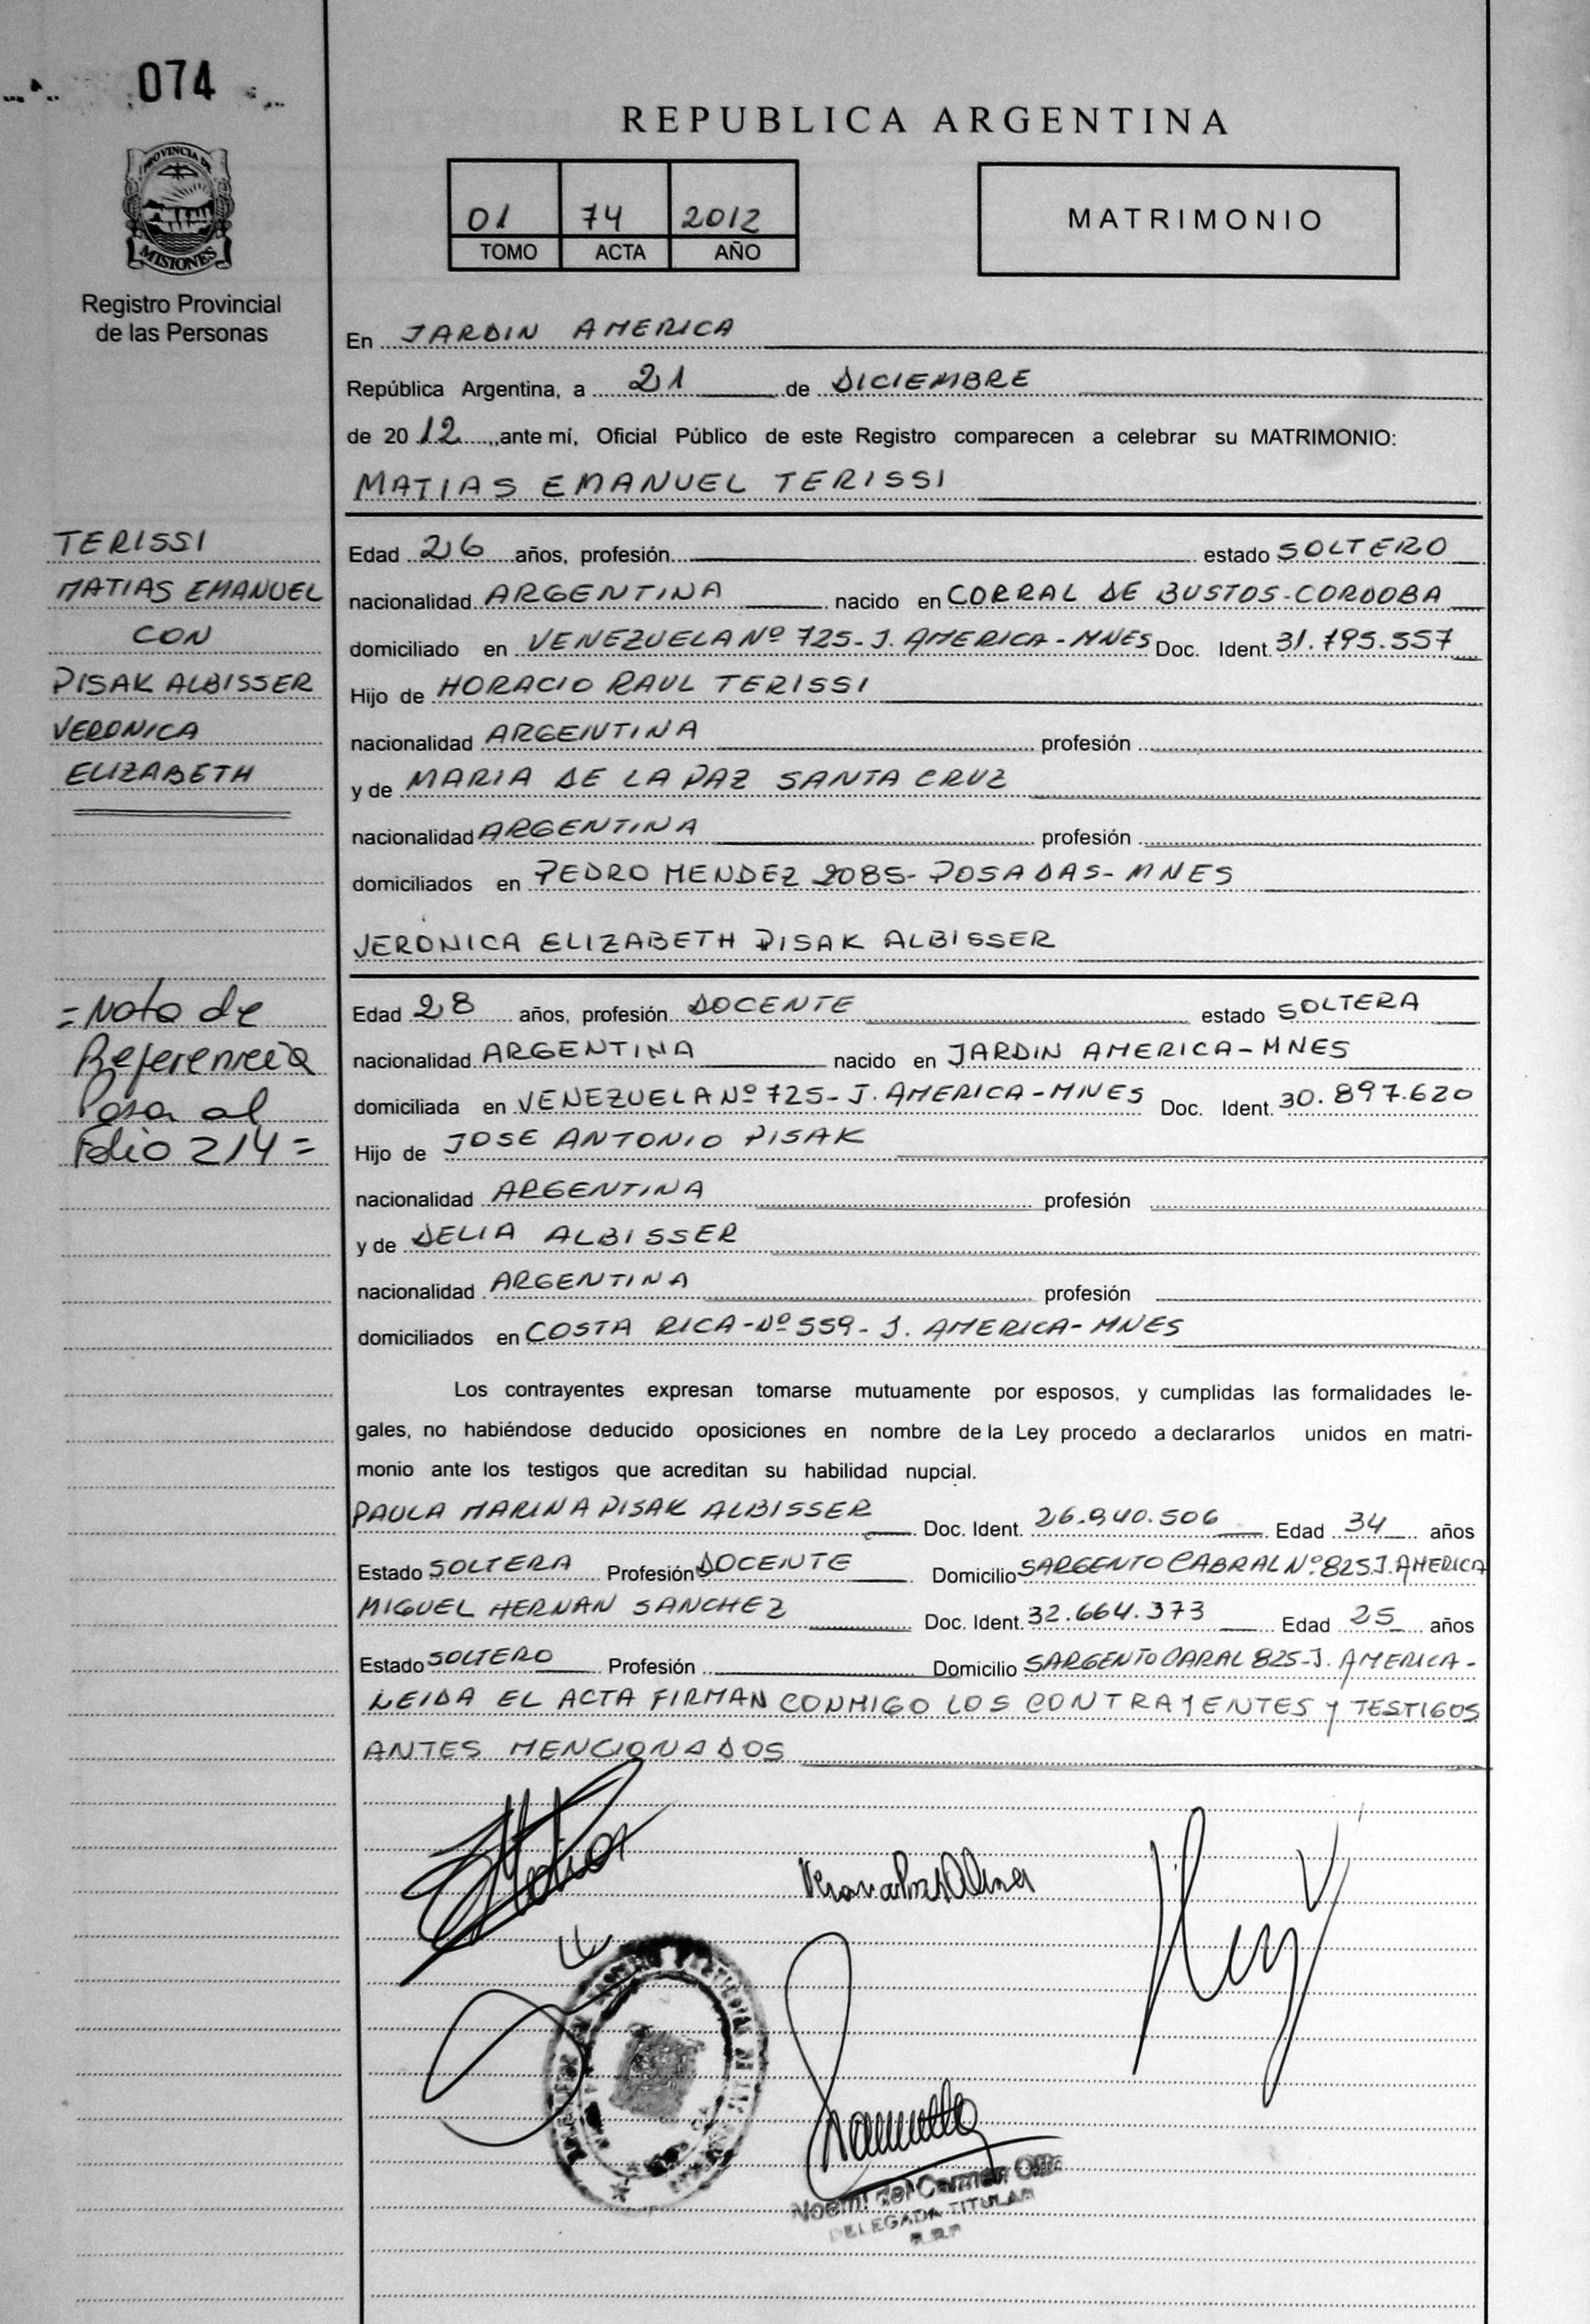 074
PROVINCIA DE
MISIONES
Registro Provincial
de las Personas
REPUBLICA ARGENTINA
01 74 2012
TOMO ACTA AÑO
MATRIMONIO
En JARDIN AMERICA
República Argentina, a 21 de DICIEMBRE
de 2012, ante mí, Oficial Público de este Registro comparecen a celebrar su MATRIMONIO:
MATIAS EMANUEL TERISSI
TERISSI
MATIAS EMANUEL
CON
PISAK ALBISSER
VERONICA
ELIZABETH
Edad 26 años, profesión estado SOLTERO
nacionalidad ARGENTINA nacido en CORRAL DE BUSTOS-CORDOBA
domiciliado en VENEZUELA Nº 725-J. AMERICA-MNES Doc. Ident. 31.795.557
Hijo de HORACIO RAUL TERISSI
nacionalidad ARGENTINA profesión
y de MARIA DE LA PAZ SANTA CRUZ
nacionalidad ARGENTINA profesión
domiciliados en PEDRO MENDEZ 2085-POSADAS-MNES
VERONICA ELIZABETH PISAK ALBISSER
= Nota de
Referencia
Pasa al
Folio 214 =
Edad 28 años, profesión DOCENTE estado SOLTERA
nacionalidad ARGENTINA nacido en JARDIN AMERICA-MNES
domiciliada en VENEZUELA Nº 725-J. AMERICA-MNES Doc. Ident. 30.897.620
Hijo de JOSE ANTONIO PISAK
nacionalidad ARGENTINA profesión
y de DELIA ALBISSER
nacionalidad ARGENTINA profesión
domiciliados en COSTA RICA-Nº 559-J. AMERICA-MNES
Los contrayentes expresan tomarse mutuamente por esposos, y cumplidas las formalidades le-
gales, no habiéndose deducido oposiciones en nombre de la Ley procedo a declararlos unidos en matri-
monio ante los testigos que acreditan su habilidad nupcial.
PAULA MARINA PISAK ALBISSER Doc. Ident. 26.940.506 Edad 34 años
Estado SOLTERA Profesión DOCENTE Domicilio SARGENTO CABRAL Nº 825 J. AMERICA
MIGUEL HERNAN SANCHEZ Doc. Ident. 32.664.373 Edad 25 años
Estado SOLTERO Profesión Domicilio SARGENTO CARAL 825-J. AMERICA-
LEIDA EL ACTA FIRMAN CONMIGO LOS CONTRAYENTES Y TESTIGOS
ANTES MENCIONADOS
Matias
Noemi del Carmen
DELEGADA TITULAR